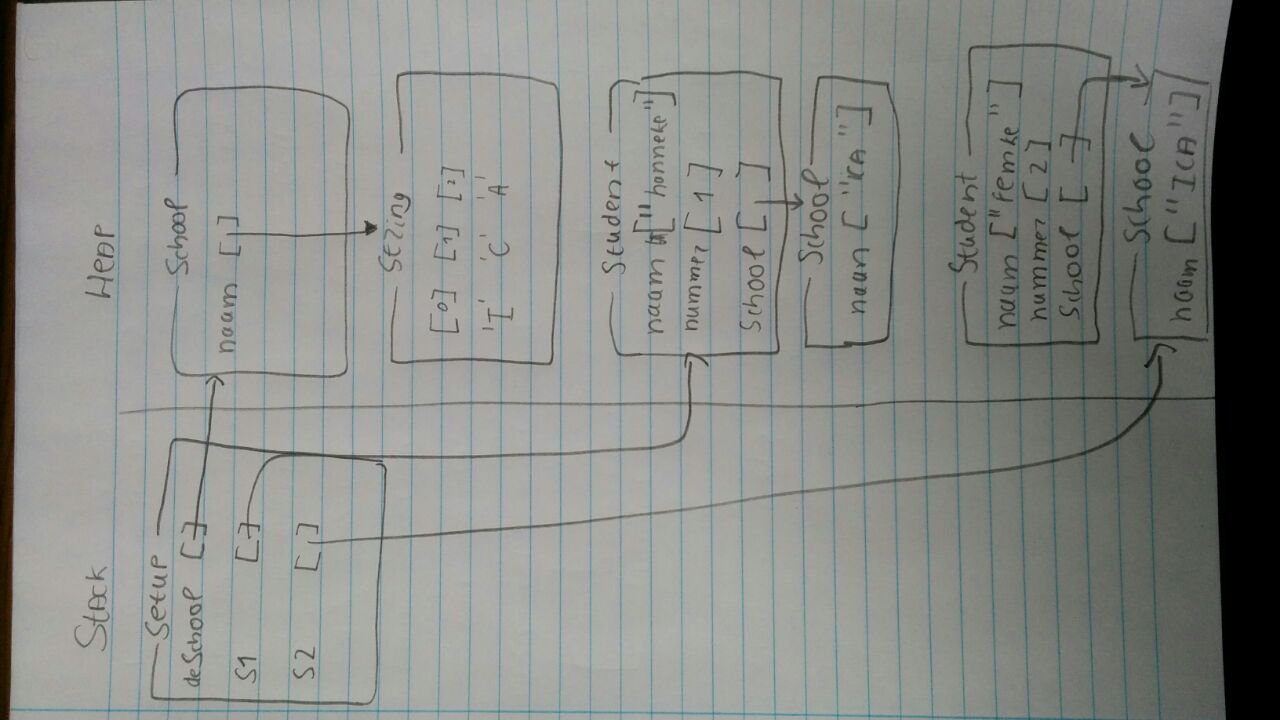 Stack
Heap
Setup
deSchool [ ]
S1 [ ]
S2 [ ]
School
naam [ ]
String
[0] [1] [2]
'I' 'C' 'A'
Student
naam ["hanneke"]
nummer [1]
School [ ]
School
naam ["ICA"]
Student
naam ["Femke"]
nummer [2]
School [ ]
School
naam ["ICA"]